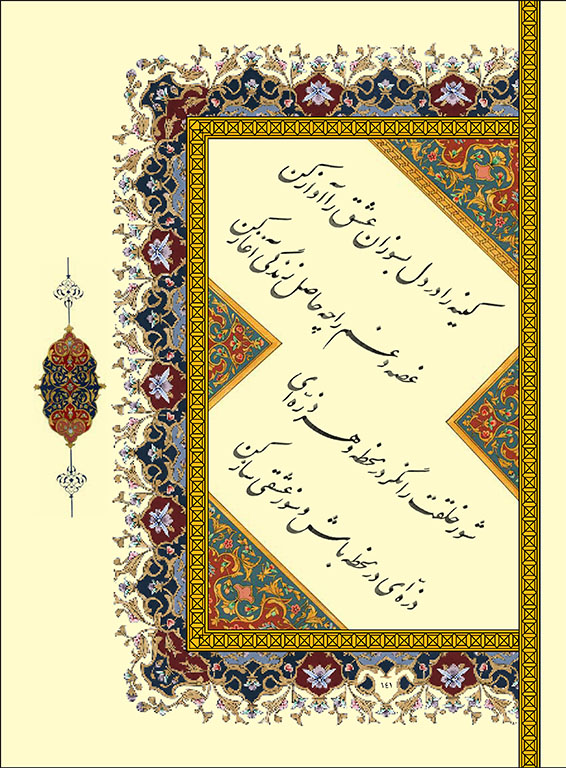 کینه را در دل بسوزان عشق را آواز کن
غصه و غم را چه حاصل زندگی آغاز کن
شور خلقت را نگر در لحظه و هر ذره‌ای
ذره‌ای در لحظه باش و سوز عشقی ساز کن
١٤١